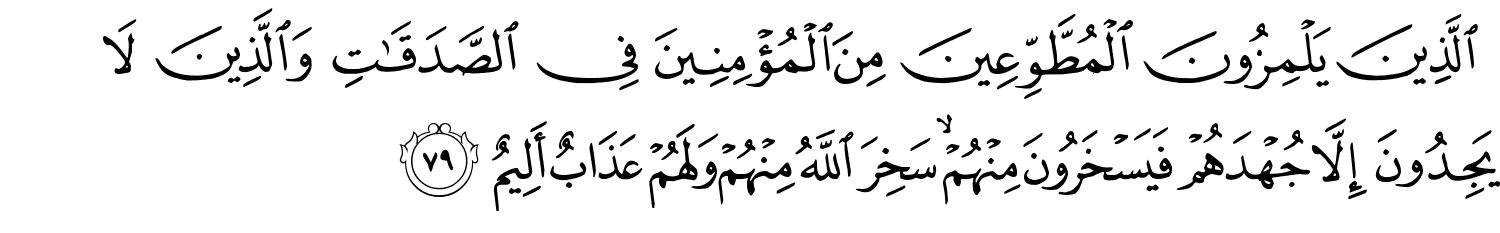 ٱلَّذِينَ يَلْمِزُونَ ٱلْمُطَّوِّعِينَ مِنَ ٱلْمُؤْمِنِينَ فِى ٱلصَّدَقَٰتِ وَٱلَّذِينَ لَا
يَجِدُونَ إِلَّا جُهْدَهُمْ فَيَسْخَرُونَ مِنْهُمْ ۙ سَخِرَ ٱللَّهُ مِنْهُمْ وَلَهُمْ عَذَابٌ أَلِيمٌ ٧٩